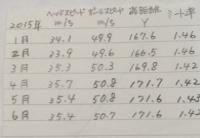 2015年 ヘッドスピード ボールスピード 高飛距離 ミート率
m/s m/s Y
1月 34.1 49.9 167.6 1.46
2月 33.9 49.6 166.5 1.46
3月 35.3 50.3 169.8 1.42
4月 35.7 50.8 171.7 1.42
5月 35.4 50.8 171.6 1.43
6月 35.4 50.7 171.6 1.42